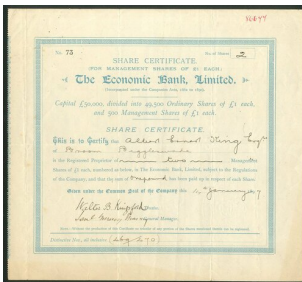 No. 73 No. of Shares 2
SHARE CERTIFICATE.
(FOR MANAGEMENT SHARES OF £1 EACH)
The Economic Bank, Limited.
Incorporated under the Companies Acts, 1862 to 1890.
Capital £50,000, divided into 49,500 Ordinary Shares of £1 each,
and 500 Management Shares of £1 each.
SHARE CERTIFICATE.
This is to Certify that Albert Ernest King Esqre
of
is the Registered Proprietor of two Management
Shares of £1 each, numbered as below, in The Economic Bank, Limited, subject to the Regulations
of the Company, and that the sum of One pound has been paid up in respect of each Share.
Given under the Common Seal of the Company this 4th January
Directors.
Manager.
Distinctive Nos., all inclusive (269-270)